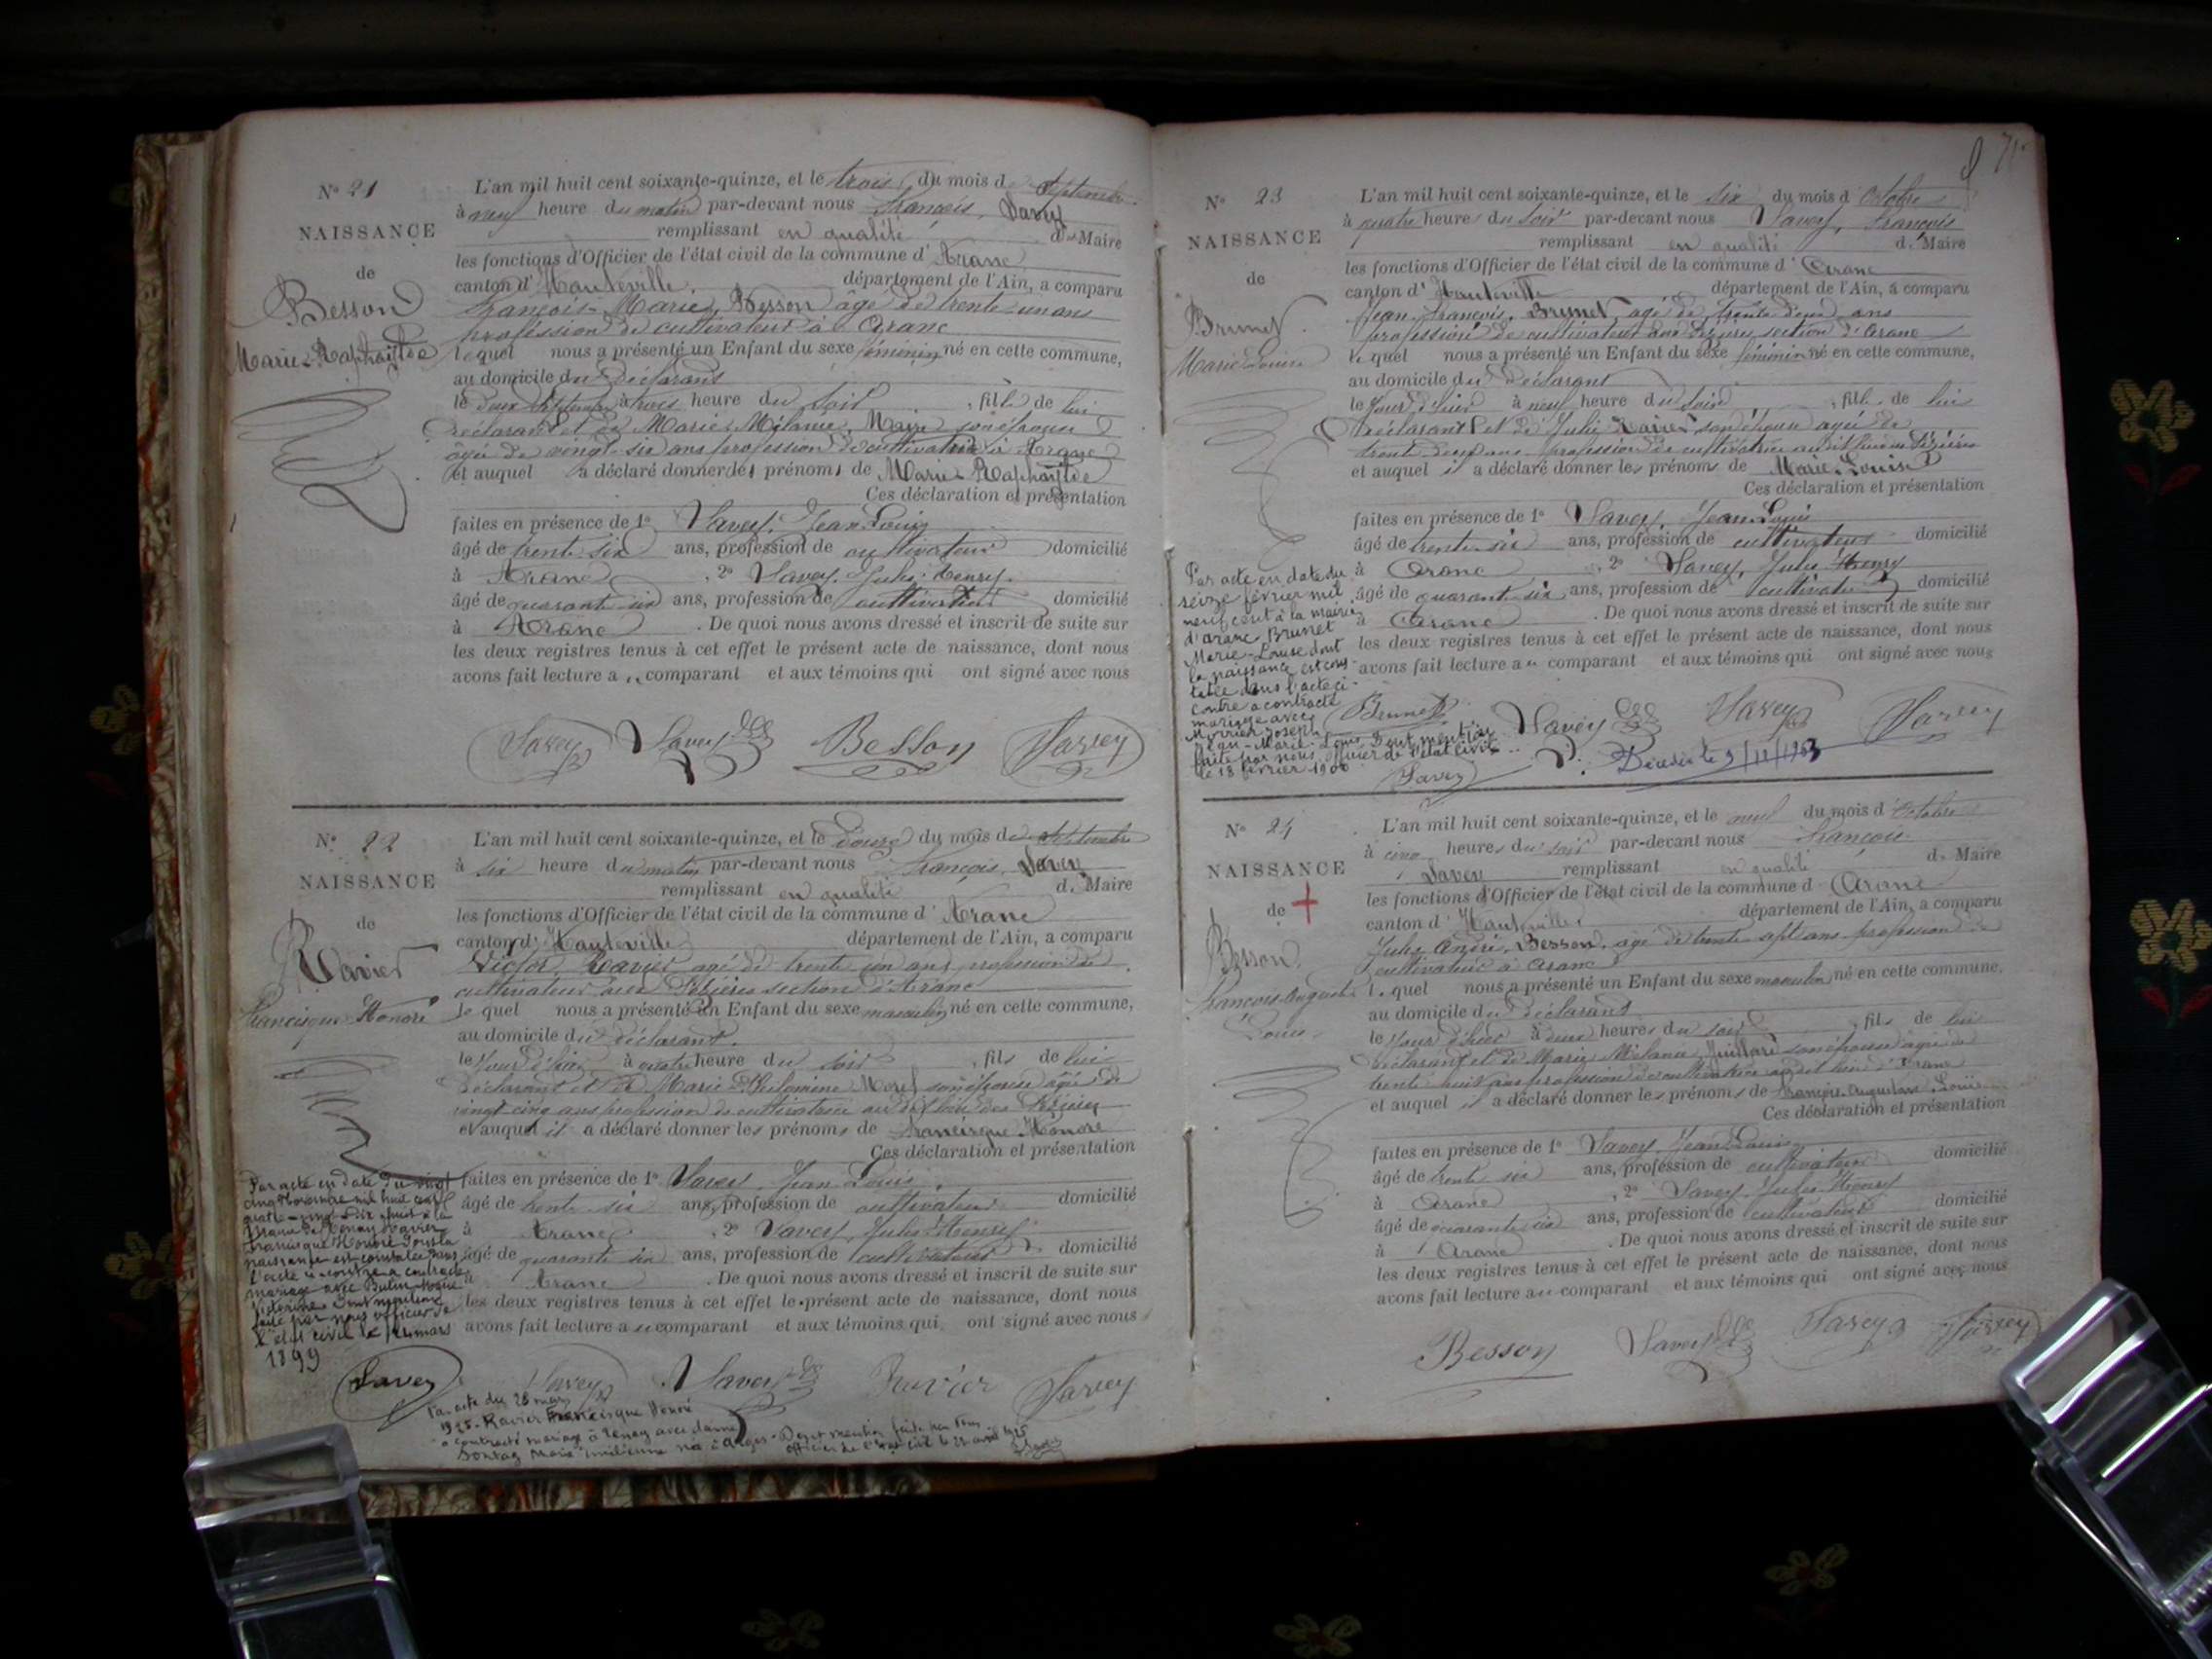 N° 21
NAISSANCE
de
Besson
Marie-Raphaytde
L'an mil huit cent soixante-quinze, et le trois du mois d Septembre
à neuf heure du matin par-devant nous François, Savey
remplissant en qualité d Maire
les fonctions d'Officier de l'état civil de la commune d' Aranc
canton d' Hauteville département de l'Ain, a comparu
François-Marie, Besson âgé de trente-un ans
profession de cultivateur à Aranc
lequel nous a présenté un Enfant du sexe féminin né en cette commune,
au domicile du Déclarant
le deux Septembre à trois heure du soir , fille de lui
déclarant et de Marie Mélanie, son épouse
âgée de vingt-six ans profession de cultivatrice à Aranc
et auquel a déclaré donner des prénoms de Marie-Raphaytde
Ces déclaration et présentation
faites en présence de 1° Savey, Jean Louis
âgé de trente six ans, profession de cultivateur domicilié
à Aranc , 2° Savey, Jules-Henry
âgé de quarante six ans, profession de cultivateur domicilié
à Aranc . De quoi nous avons dressé et inscrit de suite sur
les deux registres tenus à cet effet le présent acte de naissance, dont nous
avons fait lecture au comparant et aux témoins qui ont signé avec nous
Savey Savey Besson Savey
N° 22
NAISSANCE
de
Ravier
Francisque Honoré
L'an mil huit cent soixante-quinze, et le douze du mois de Septembre
à six heure du matin par-devant nous François, Savey
remplissant en qualité d Maire
les fonctions d'Officier de l'état civil de la commune d' Aranc
canton d' Hauteville département de l'Ain, a comparu
Victor, Ravier âgé de trente un ans profession de
cultivateur aux Pézières section d'Aranc
lequel nous a présenté un Enfant du sexe masculin né en cette commune,
au domicile du déclarant.
le jour d'hier à quatre heure du soir , fils de lui
déclarant et de Marie-Philomine Morel son épouse âgée de
vingt cinq ans profession de cultivatrice au dit lieu des Pézières
et auquel il a déclaré donner les prénoms de Francisque-Honoré
Ces déclaration et présentation
faites en présence de 1° Savey, Jean Louis
âgé de trente six ans, profession de cultivateur domicilié
à Aranc , 2° Savey, Jules-Henry
âgé de quarante six ans, profession de cultivateur domicilié
à Aranc . De quoi nous avons dressé et inscrit de suite sur
les deux registres tenus à cet effet le présent acte de naissance, dont nous
avons fait lecture au comparant et aux témoins qui ont signé avec nous
Par acte en date du vingt
cinq Novembre mil huit cent
quatre-vingt-dix-huit à la
Mairie de Tenay Ravier
Francisque Honoré dont la
naissance est constatée dans
l'acte ci-contre a contracté
mariage avec
Victorine Dont mention
faite par nous officier de
l'état civil le mars
1899
Savey Savey Savey Ravier Savey
Par acte du 28 mars
1925. Ravier Francisque Honoré
a contracté mariage à Tenay avec dame
Sontag Marie née à . Dont mention faite par nous
officier de l'état civil le avril 1925
N° 23
NAISSANCE
de
Brunet
Marie Louise
L'an mil huit cent soixante-quinze, et le six du mois d' Octobre
à quatre heure du soir par-devant nous Savey, François
remplissant en qualité d. Maire
les fonctions d'Officier de l'état civil de la commune d' Aranc
canton d' Hauteville département de l'Ain, a comparu
Jean François, Brunet, agé de trente deux ans
profession de cultivateur aux Pézières section d'Aranc
le quel nous a présenté un Enfant du sexe féminin né en cette commune,
au domicile du Déclarant
le jour d'hier à neuf heure du soir , fille de lui
déclarant et de Julie Ravier son épouse agée de
trente deux ans profession de cultivatrice au dit lieu des Pézières
et auquel il a déclaré donner les prénoms de Marie-Louise
Ces déclaration et présentation
faites en présence de 1° Savey, Jean Louis
âgé de trente six ans, profession de cultivateur domicilié
à Aranc , 2° Savey, Jules Henry
âgé de quarante six ans, profession de cultivateur domicilié
à Aranc . De quoi nous avons dressé et inscrit de suite sur
les deux registres tenus à cet effet le présent acte de naissance, dont nous
avons fait lecture au comparant et aux témoins qui ont signé avec nous
Par acte en date du
seize février mil
neuf cent à la mairie
d'Aranc Brunet
Marie-Louise dont
la naissance est cons-
tatée dans l'acte ci-
contre a contracté
mariage avec
Joseph
Jean-Marie-Louis Dont mention
faite par nous officier de l'état civil
le 18 février 1900
Brunet Savey Savey Savey
Savey
Décédée le 9/12/1963
N° 24
NAISSANCE
de +
Besson
François Auguste
Louis
L'an mil huit cent soixante-quinze, et le neuf du mois d' Octobre
à cinq heures du soir par-devant nous François
Savey remplissant en qualité d. Maire
les fonctions d'Officier de l'état civil de la commune d Aranc
canton d' Hauteville département de l'Ain, a comparu
Jules André, Besson, agé de trente sept ans profession de
cultivateur à Aranc
le quel nous a présenté un Enfant du sexe masculin né en cette commune,
au domicile du déclarant
le jour d'hier à deux heures du soir , fils de lui
déclarant et de Marie Melanie, Juillard son épouse agée de
trente huit ans profession de cultivatrice au dit lieu d'Aranc
et auquel il a déclaré donner les prénoms de François-Auguste Louis
Ces déclaration et présentation
faites en présence de 1° Savey, Jean Louis
âgé de trente six ans, profession de cultivateur domicilié
à Aranc , 2° Savey, Jules Henry
âgé de quarante six ans, profession de cultivateur domicilié
à Aranc . De quoi nous avons dressé et inscrit de suite sur
les deux registres tenus à cet effet le présent acte de naissance, dont nous
avons fait lecture au comparant et aux témoins qui ont signé avec nous
Besson Savey Savey Savey